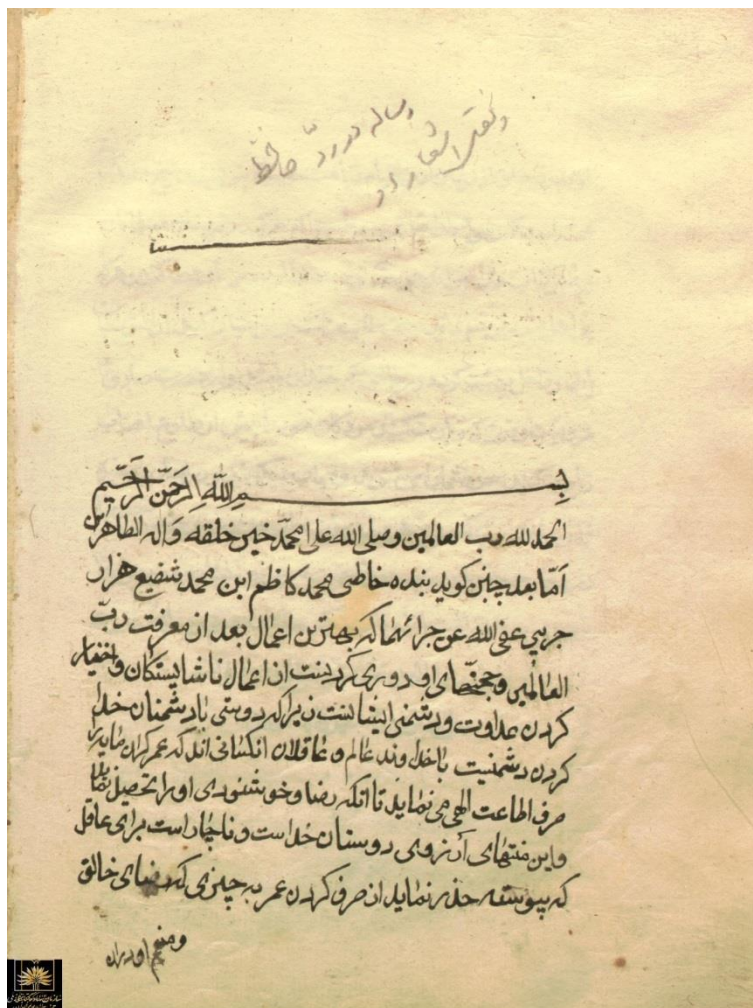 رساله در ردّ حافظ
بسم الله الرحمن الرحیم
الحمد لله رب العالمین وصلی الله علی محمّد خیر خلقه وَاله الطاهرین
اَمّا بعد چنین کوید بنده خاطی محمد کاظم ابن محمد شفیع هزار
جریبی عفی الله عن جرائمهما که بهترین اعمال بعد از معرفت ربّ
العالمین و حجتهای او دوری کردنست از اعمال ناشایستکان و اختیار
کردن عداوت و دشمنی ایشانست زیرا که دوستی با دشمنان خدا
کردن دشمنیست با خداوند عالم و عاقلان انکسانی اند که عمر کران مایه را
صرف اطاعت الهی می نماید تا انکه رضا و خوشنودی او را تحصیل نماید
واین منتهای آرزوی دوستان خداست و ناچار است برای عاقل
که پیوسته حذر نماید از صرف کردن عمر به چیزی که رضای خالق
و منعم او در ان